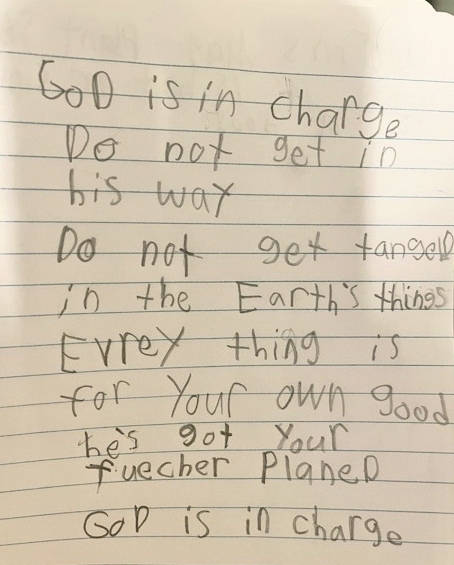 GOD is in charge
Do not get in
his way
Do not get tangelD
in the Earth's things
Evrey thing is
for Your own good
he's got Your
fuecher PlaneD
GOD is in charge